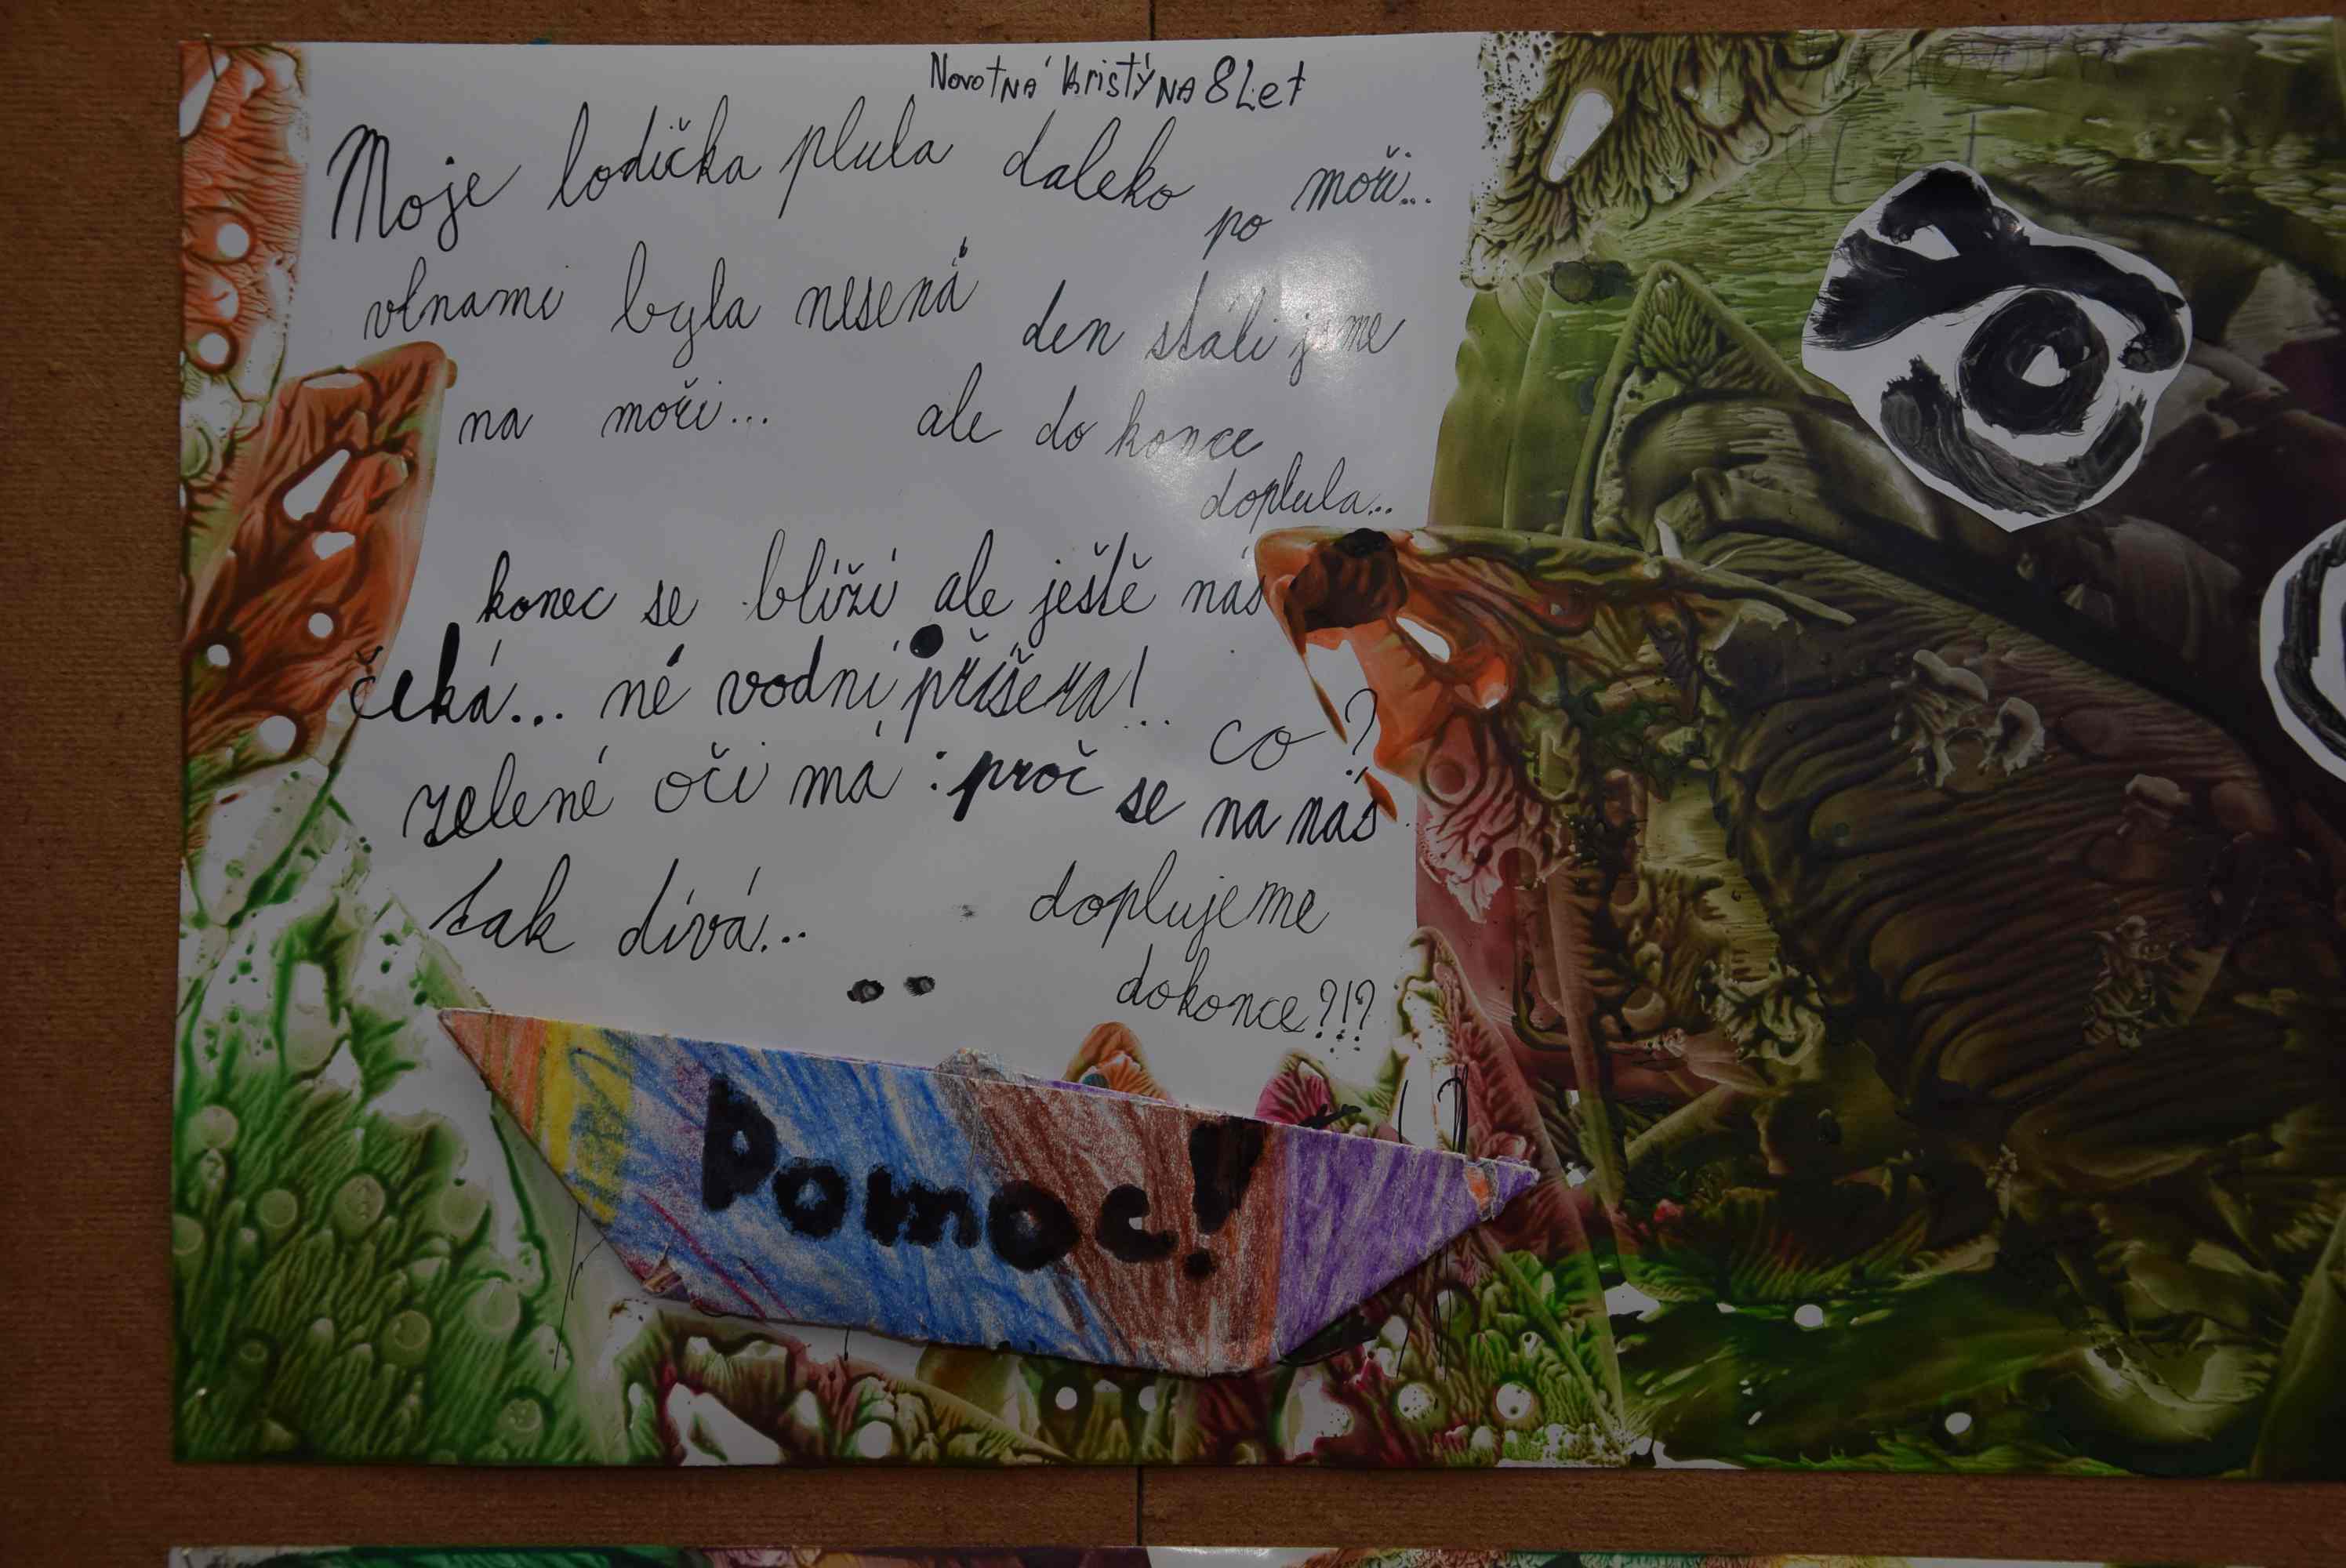 Novotná Kristýna 8 Let
Moje lodička plula daleko po moři...
vlnami byla nesená den stáli jsme
na moři... ale do konce
doplula...
konec se blíží ale ještě nás
čeká... né vodní příšera!..
co?
zelené oči má: proč se na nás
tak dívá... doplujeme
dokonce?!?
Pomoc!
8 Let